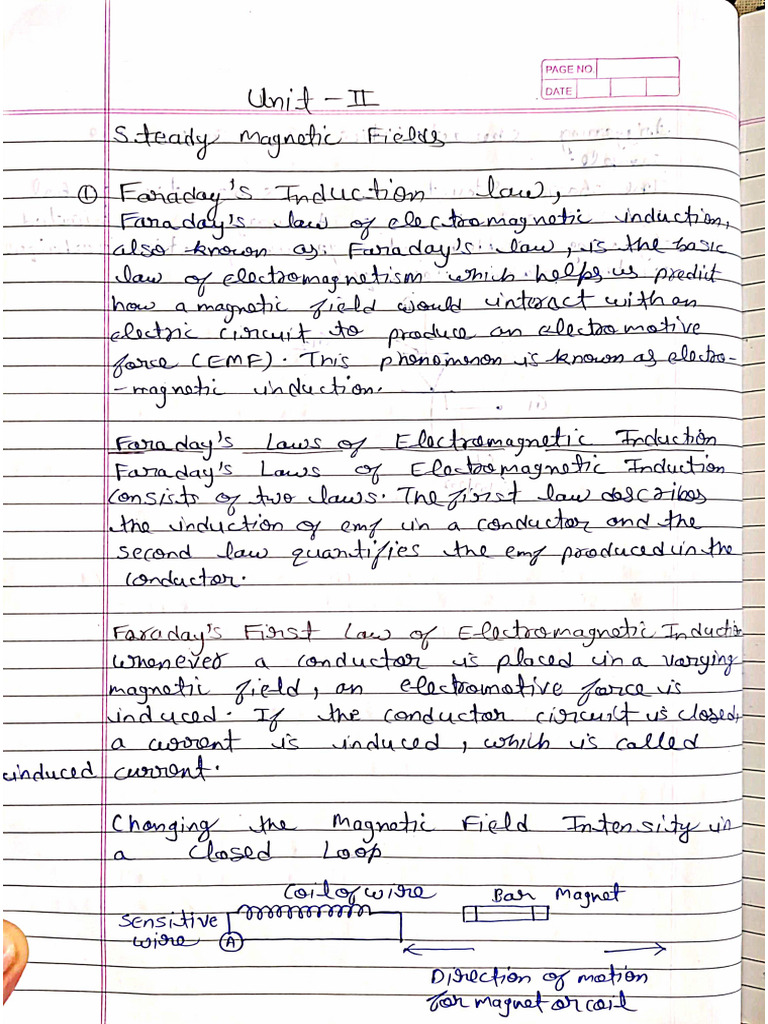 PAGE NO.
DATE
Unit - II
Steady Magnetic Fields
① Faraday's Induction law,
Faraday's law of electromagnetic induction,
also known as Faraday's law, is the basic
law of electromagnetism which helps us predict
how a magnetic field would interact with an
electric circuit to produce an electromotive
force (EMF). This phenomenon is known as electro-
-magnetic induction.
Faraday's Laws of Electromagnetic Induction
Faraday's Laws of Electromagnetic Induction
consists of two laws. The first law describes
the induction of emf in a conductor and the
second law quantifies the emf produced in the
conductor.
Faraday's First Law of Electromagnetic Induction
whenever a conductor is placed in a varying
magnetic field, an electromotive force is
induced. If the conductor circuit is closed,
a current is induced, which is called
induced current.
Changing the Magnetic Field Intensity in
a closed Loop
Coil of wire Bar Magnet
Sensitive
wire A
Direction of motion
for magnet or coil